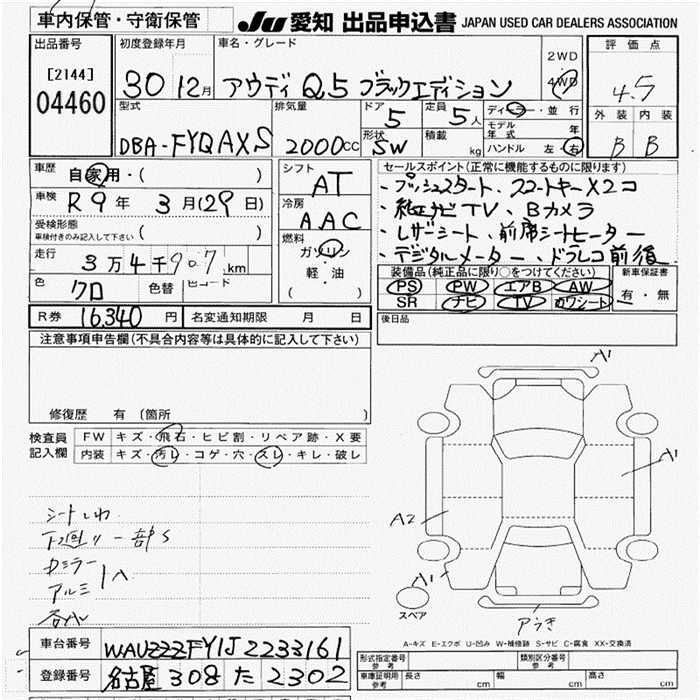 車内保管・守衛保管
JU 愛知 出品申込書 JAPAN USED CAR DEALERS ASSOCIATION
出品番号 初度登録年月 車名・グレード 2WD 4WD 評価点
[2144]
04460
30 12月 アウディ Q5 ブラックエディション 4.5
型式 排気量 ドア 定員 ディーラー・並行 外装 内装
5 5人 モデル年式 年
DBA-FYQAXS 2000CC 形状 SW 積載 kg ハンドル 左・右 B B
車歴 自家用・( ) シフト AT セールスポイント(正常に機能するものに限ります)
・プッシュスタート、スマートキー×2コ
車検 R9年 3月(29日) 冷房 AAC ・純正ナビTV、Bカメラ
受検形態 ( )
車検付きのみ記入して下さい
燃料 ガソリン ・レザーシート、前席シートヒーター
走行 3万4千907km 軽・油 ・デジタルメーター、ドラレコ前後
( )
色 クロ 色替 色コード 装備品(純正品に限り○をつけてください) 新車保証書
PS PW エアB AW 有・無
SR ナビ TV カワシート
R券 16,340円 名変通知期限 月 日 後日品
注意事項申告欄(不具合内容等は具体的に記入して下さい)
A1
修復歴 有(箇所 )
検査員記入欄 FW キズ・飛石・ヒビ割・リペア跡・X要
内装 キズ・汚レ・コゲ・穴・スレ・キレ・破レ
A1
シートしわ
A2
下廻り一部S
カミラー
アルミ
A
A1
スペア
アラキ
A-キズ E-エクボ U-凹み W-補修跡 S-サビ C-腐食 XX-交換済
車台番号 WAUZZZFY1J2233161
登録番号 名古屋 308 た 2302
形式指定番号 参考 類別区分番号 参考
車庫証明用 参考 長さ cm 幅 cm 高さ cm